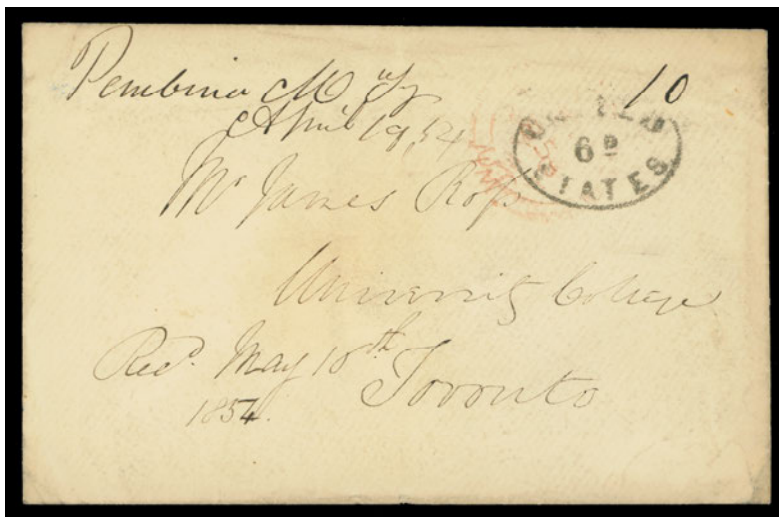 Pembina M. Ty
10
April 19, 54
UNITED
6D
STATES
Mr James Ross
University College
Toronto
Recd. May 18th
1854.